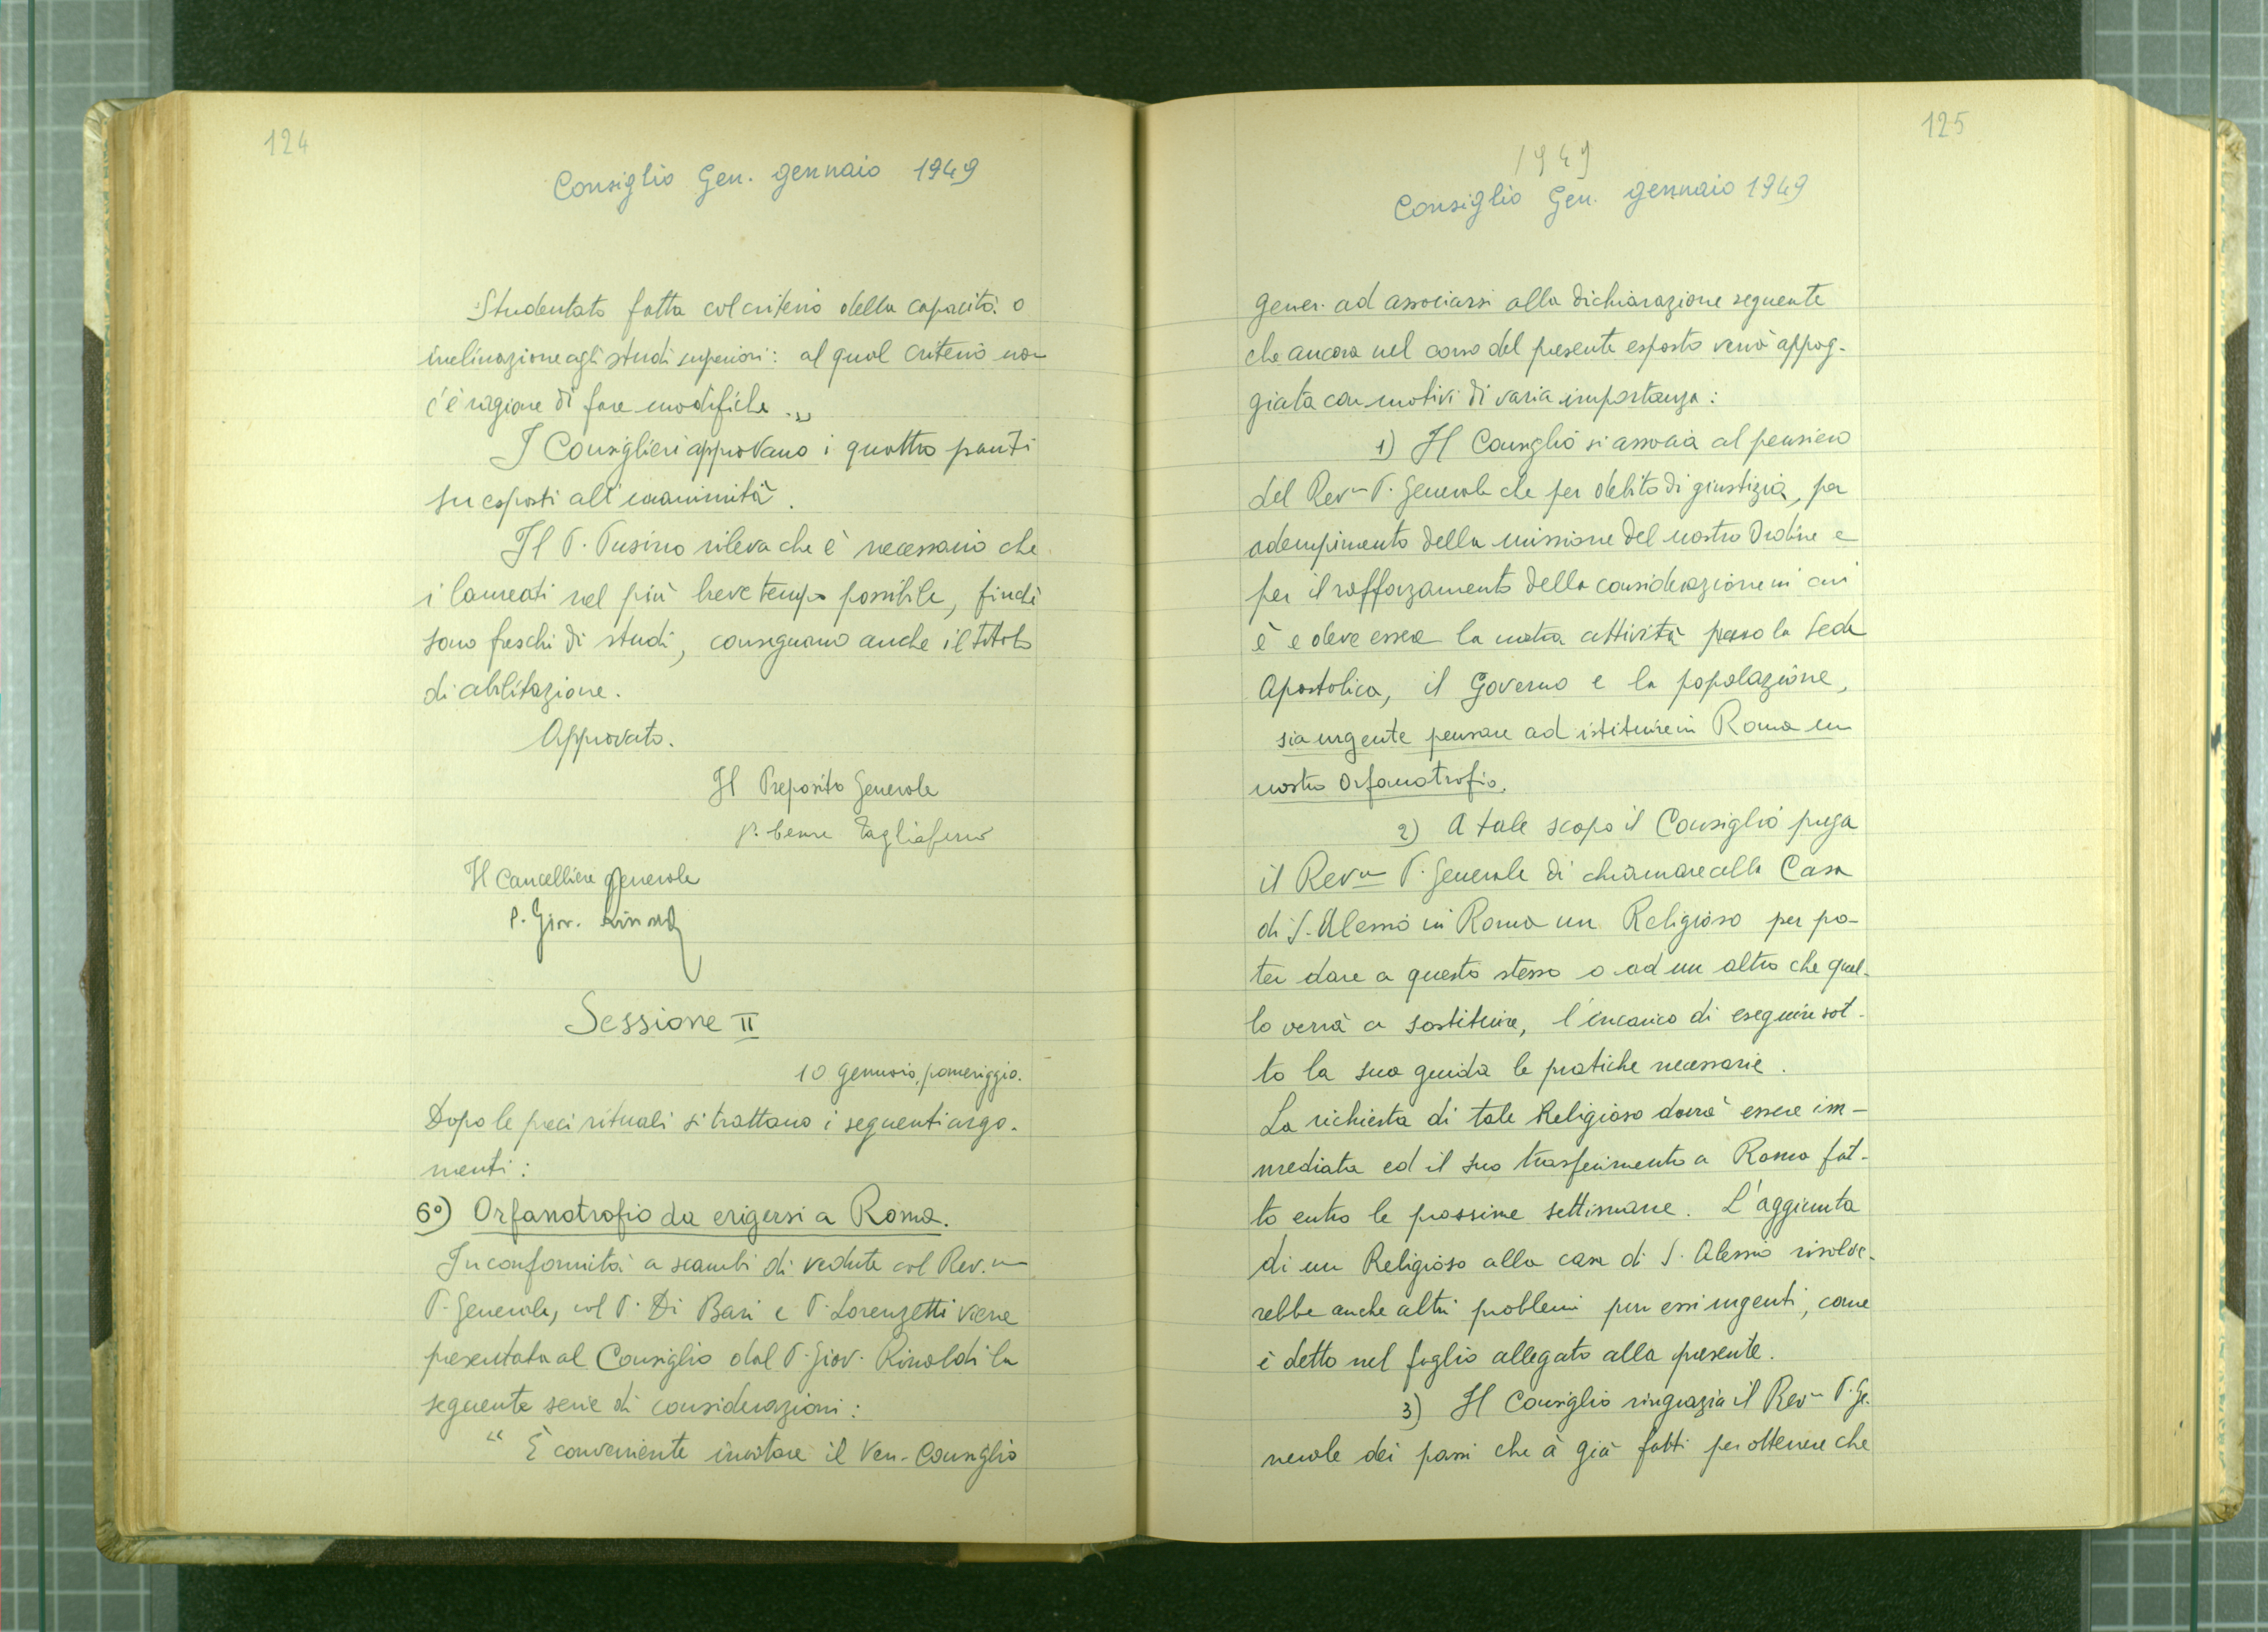 124
Consiglio Gen. gennaio 1949
Studentato fatta col criterio della capacità o
inclinazione agli studi superiori: al qual criterio non
c'è ragione di fare modifiche.„
I Consiglieri approvano i quattro punti
su esposti all'unanimità.
Il P. Pusino rileva che è necessario che
i laureati nel più breve tempo possibile, finchè
sono freschi di studi, conseguano anche il titolo
di abilitazione.
Approvato.
Il Preposito Generale
p. Cesare Tagliaferro
Il Cancelliere generale
P. Giov. Rinaldi
Sessione II
10 Gennaio, pomeriggio.
Dopo le preci rituali si trattano i seguenti argo-
menti:
6°) Orfanotrofio da erigersi a Roma.
In conformità a scambi di vedute col Rev.mo
P. Generale, col P. Di Bari e P. Lorenzetti viene
presentata al Consiglio dal P. Giov. Rinaldi la
seguente serie di considerazioni:
“ È conveniente invitare il Ven. Consiglio
125
1949
Consiglio Gen. gennaio 1949
Gener. ad associarsi alla dichiarazione seguente
che ancora nel corso del presente esposto verrà appog-
giata con motivi di varia importanza:
1) Il Consiglio si associa al pensiero
del Rev.mo P. Generale che per debito di giustizia, per
adempimento della missione del nostro Ordine e
per il rafforzamento della considerazione in cui
è e deve essere la nostra attività presso la Sede
Apostolica, il Governo e la popolazione,
sia urgente pensare ad istituire in Roma un
nostro Orfanotrofio.
2) A tale scopo il Consiglio prega
il Rev.mo P. Generale di chiamare alla Casa
di S. Alessio in Roma un Religioso per po-
ter dare a questo stesso o ad un altro che quel-
lo verrà a sostituire, l'incarico di eseguire sot-
to la sua guida le pratiche necessarie.
La richiesta di tale Religioso dovrà essere im-
mediata ed il suo trasferimento a Roma fat-
to entro le prossime settimane. L'aggiunta
di un Religioso alla casa di S. Alessio risolve-
rebbe anche altri problemi pur essi urgenti, come
è detto nel foglio allegato alla presente.
3) Il Consiglio ringrazia il Rev.mo P. Ge-
nerale dei passi che à già fatti per ottenere che